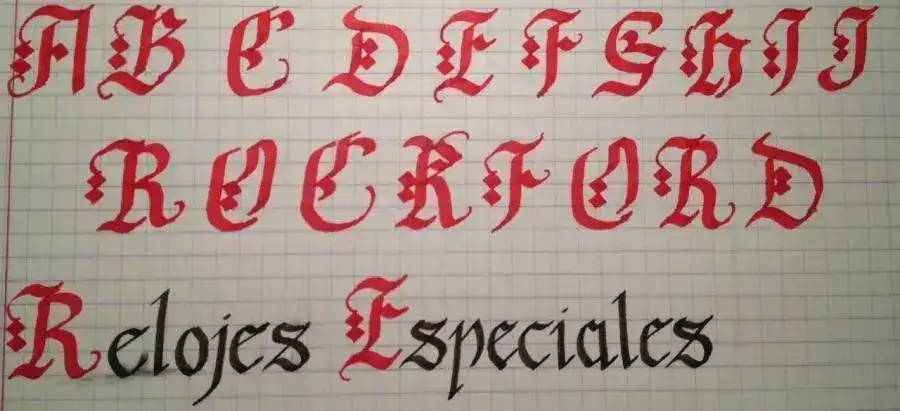 A B C D E F G H I J
ROCKFORD
Relojes Especiales